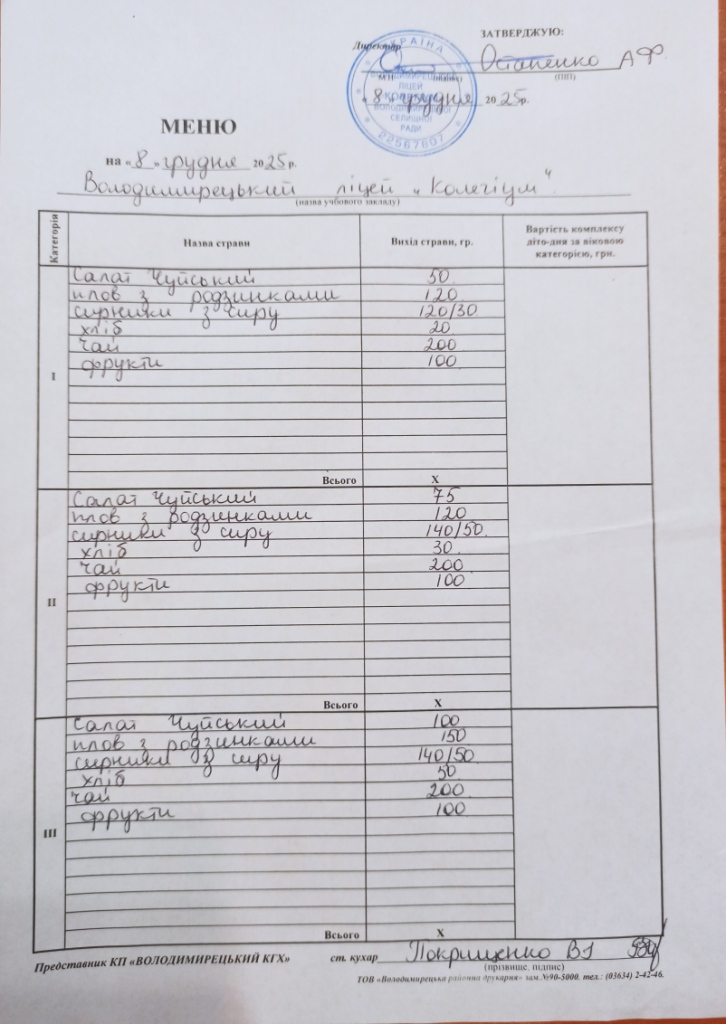 ЗАТВЕРДЖУЮ:
Директор Остапенко А Ф
М.П. (підпис) (ПІП)
« 8 » грудня 2025р.
УКРАЇНА
ВОЛОДИМИРЕЦЬКИЙ
ЛІЦЕЙ
СЕЛИЩНОЇ
РАДИ
22567607
МЕНЮ
на « 8 » грудня 2025 р.
Володимирецький ліцей „Колегіум“
(назва учбового закладу)
Категорія Назва страви Вихід страви, гр. Вартість комплексу
діто-дня за віковою
категорією, грн.
I
Салат Чуйський 50
плов з родзинками 120
сирники з сиру 120/30
хліб 20
чай 200
фрукти 100
Всього X
II
Салат Чуйський 75
плов з родзинками 120
сирники з сиру 140/50
хліб 30
чай 200
фрукти 100
Всього X
III
Салат Чуйський 100
плов з родзинками 150
сирники з сиру 140/50
хліб 50
чай 200
фрукти 100
Всього X
Представник КП «ВОЛОДИМИРЕЦЬКИЙ КГХ» ст. кухар Покрищенко
(прізвище, підпис)
ТОВ «Володимирецька районна друкарня» зам.№90-5000. тел.: (03634) 2-42-46.